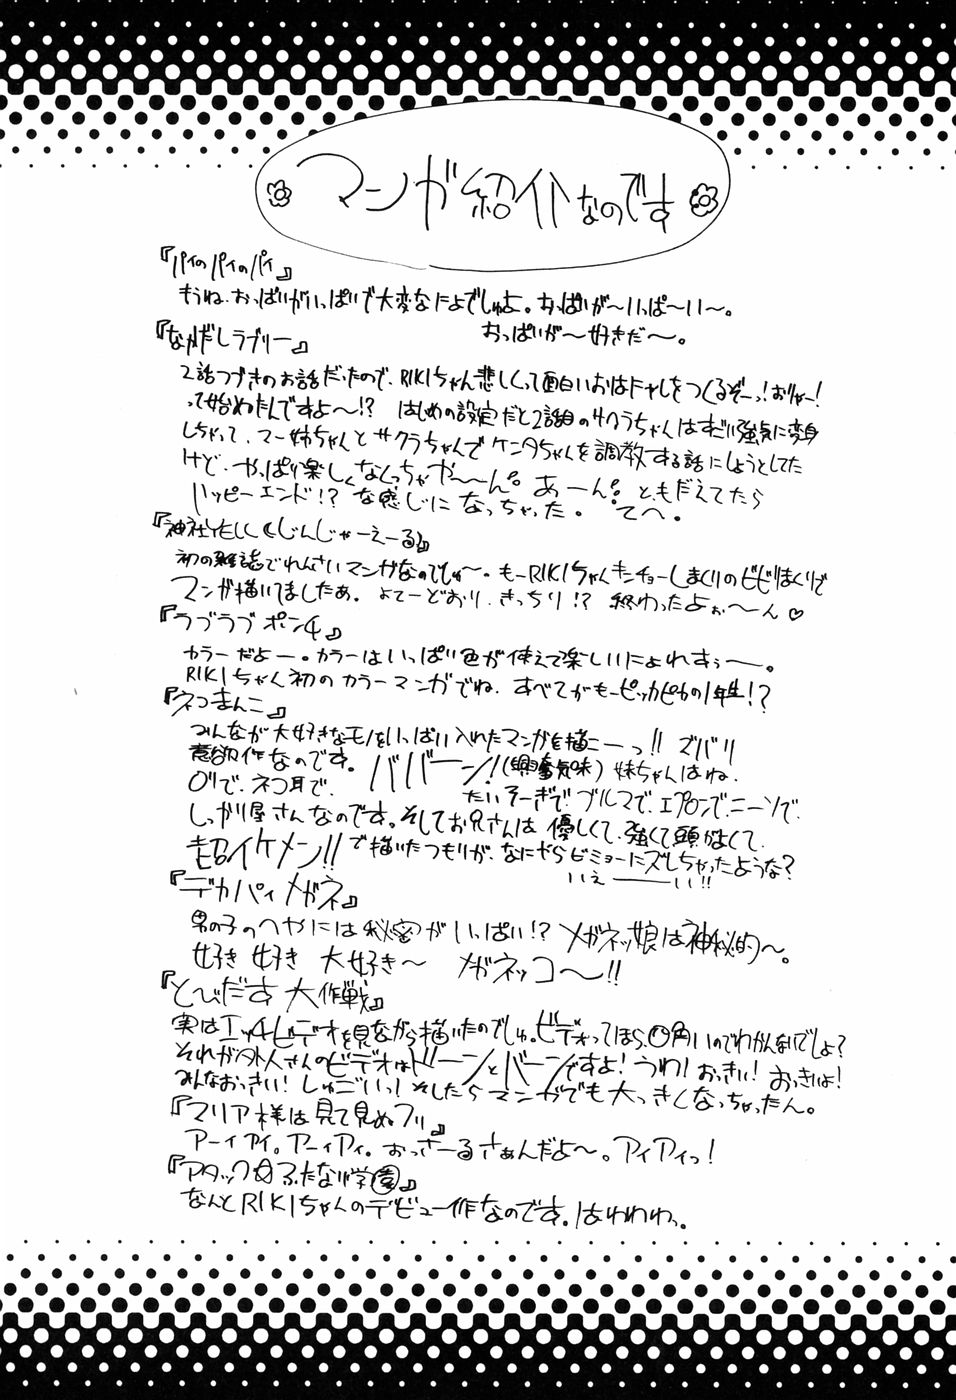 マンガ紹介なのです
『パイのパイのパイ』
もうね、おっぱいがいっぱいで大変なによでしゅよ。おっぱいが〜いっぱ〜い〜。
おっぱいが〜好きだ〜。
『なかだしラブリー』
2話つづきのお話だったので、RIKIちゃん悲しくって面白いおはナしをつくるぞーっ!おりゃー!
って始めたんですよ〜!? はじめの設定だと2話目のサクラちゃんはすごい強気に変身
しちゃって、マー姉ちゃんとサクラちゃんでケンタちゃんを調教する話にしようとしてた
けど、やっぱり楽しくなくっちゃや〜〜ん。あーん。ともだえてたら
ハッピーエンド!? な感じになっちゃった。てへ。
くじんじゃーえーる』
初の雑誌でれんさいマンガなのでしゅ〜。もーRIKIちゃんキンチョーしまくりのビビりまくりで
マンガ描いてましたぁ。よてーどおり、きっちり!? 終わったよぉ〜ん♡
『ラブラブポンチ』
カラーだよー。カラーはいっぱい色が使えて楽しいにょれすぅ〜。
RIKIちゃん初のカラーマンガでね、すべてがもーピッカピカの1年生!?
『ネコまんこ』
みんなが大好きなモノをいっぱい入れたマンガを描こーっ!! ズバリ
意欲作なのです。ババーン!(興奮気味) 妹ちゃんはね、
ロリで、ネコ耳で、たいそーぎで、ブルマで、エプロンで、ニーソで、
しっかり屋さんなのです。そしてお兄さんは優しくて、強くて頭がよくて、
超イケメン!!で描いたつもりが、なにやらビミョーにズレしちゃったような?
いぇ――い!!
『デカパイメガネ』
男の子のへやには秘密がいっぱい!? メガネッ娘は神秘的〜。
好き 好き 大好き〜 メガネッコ〜!!
『とびだす大作戦』
実はエッチビデオを見ながら描いたのでしゅ。ビデオってほら、○角いのでわかんないでしょ?
それが外人さんのビデオはドーンとバーンですよ!うわ!おっきい!おっきぃよ!
みんなおっきい!しゅごいっ!そしたらマンガでも大っきくなっちゃったん。
『マリア様は見て見ぬフリ』
アーィアイ。アーィアィ。おっさーるさぁんだよ〜。アィアィっ!
『アタック☆ふたなり学園』
なんとRIKIちゃんのデビュー作なのです。はわわわっ。